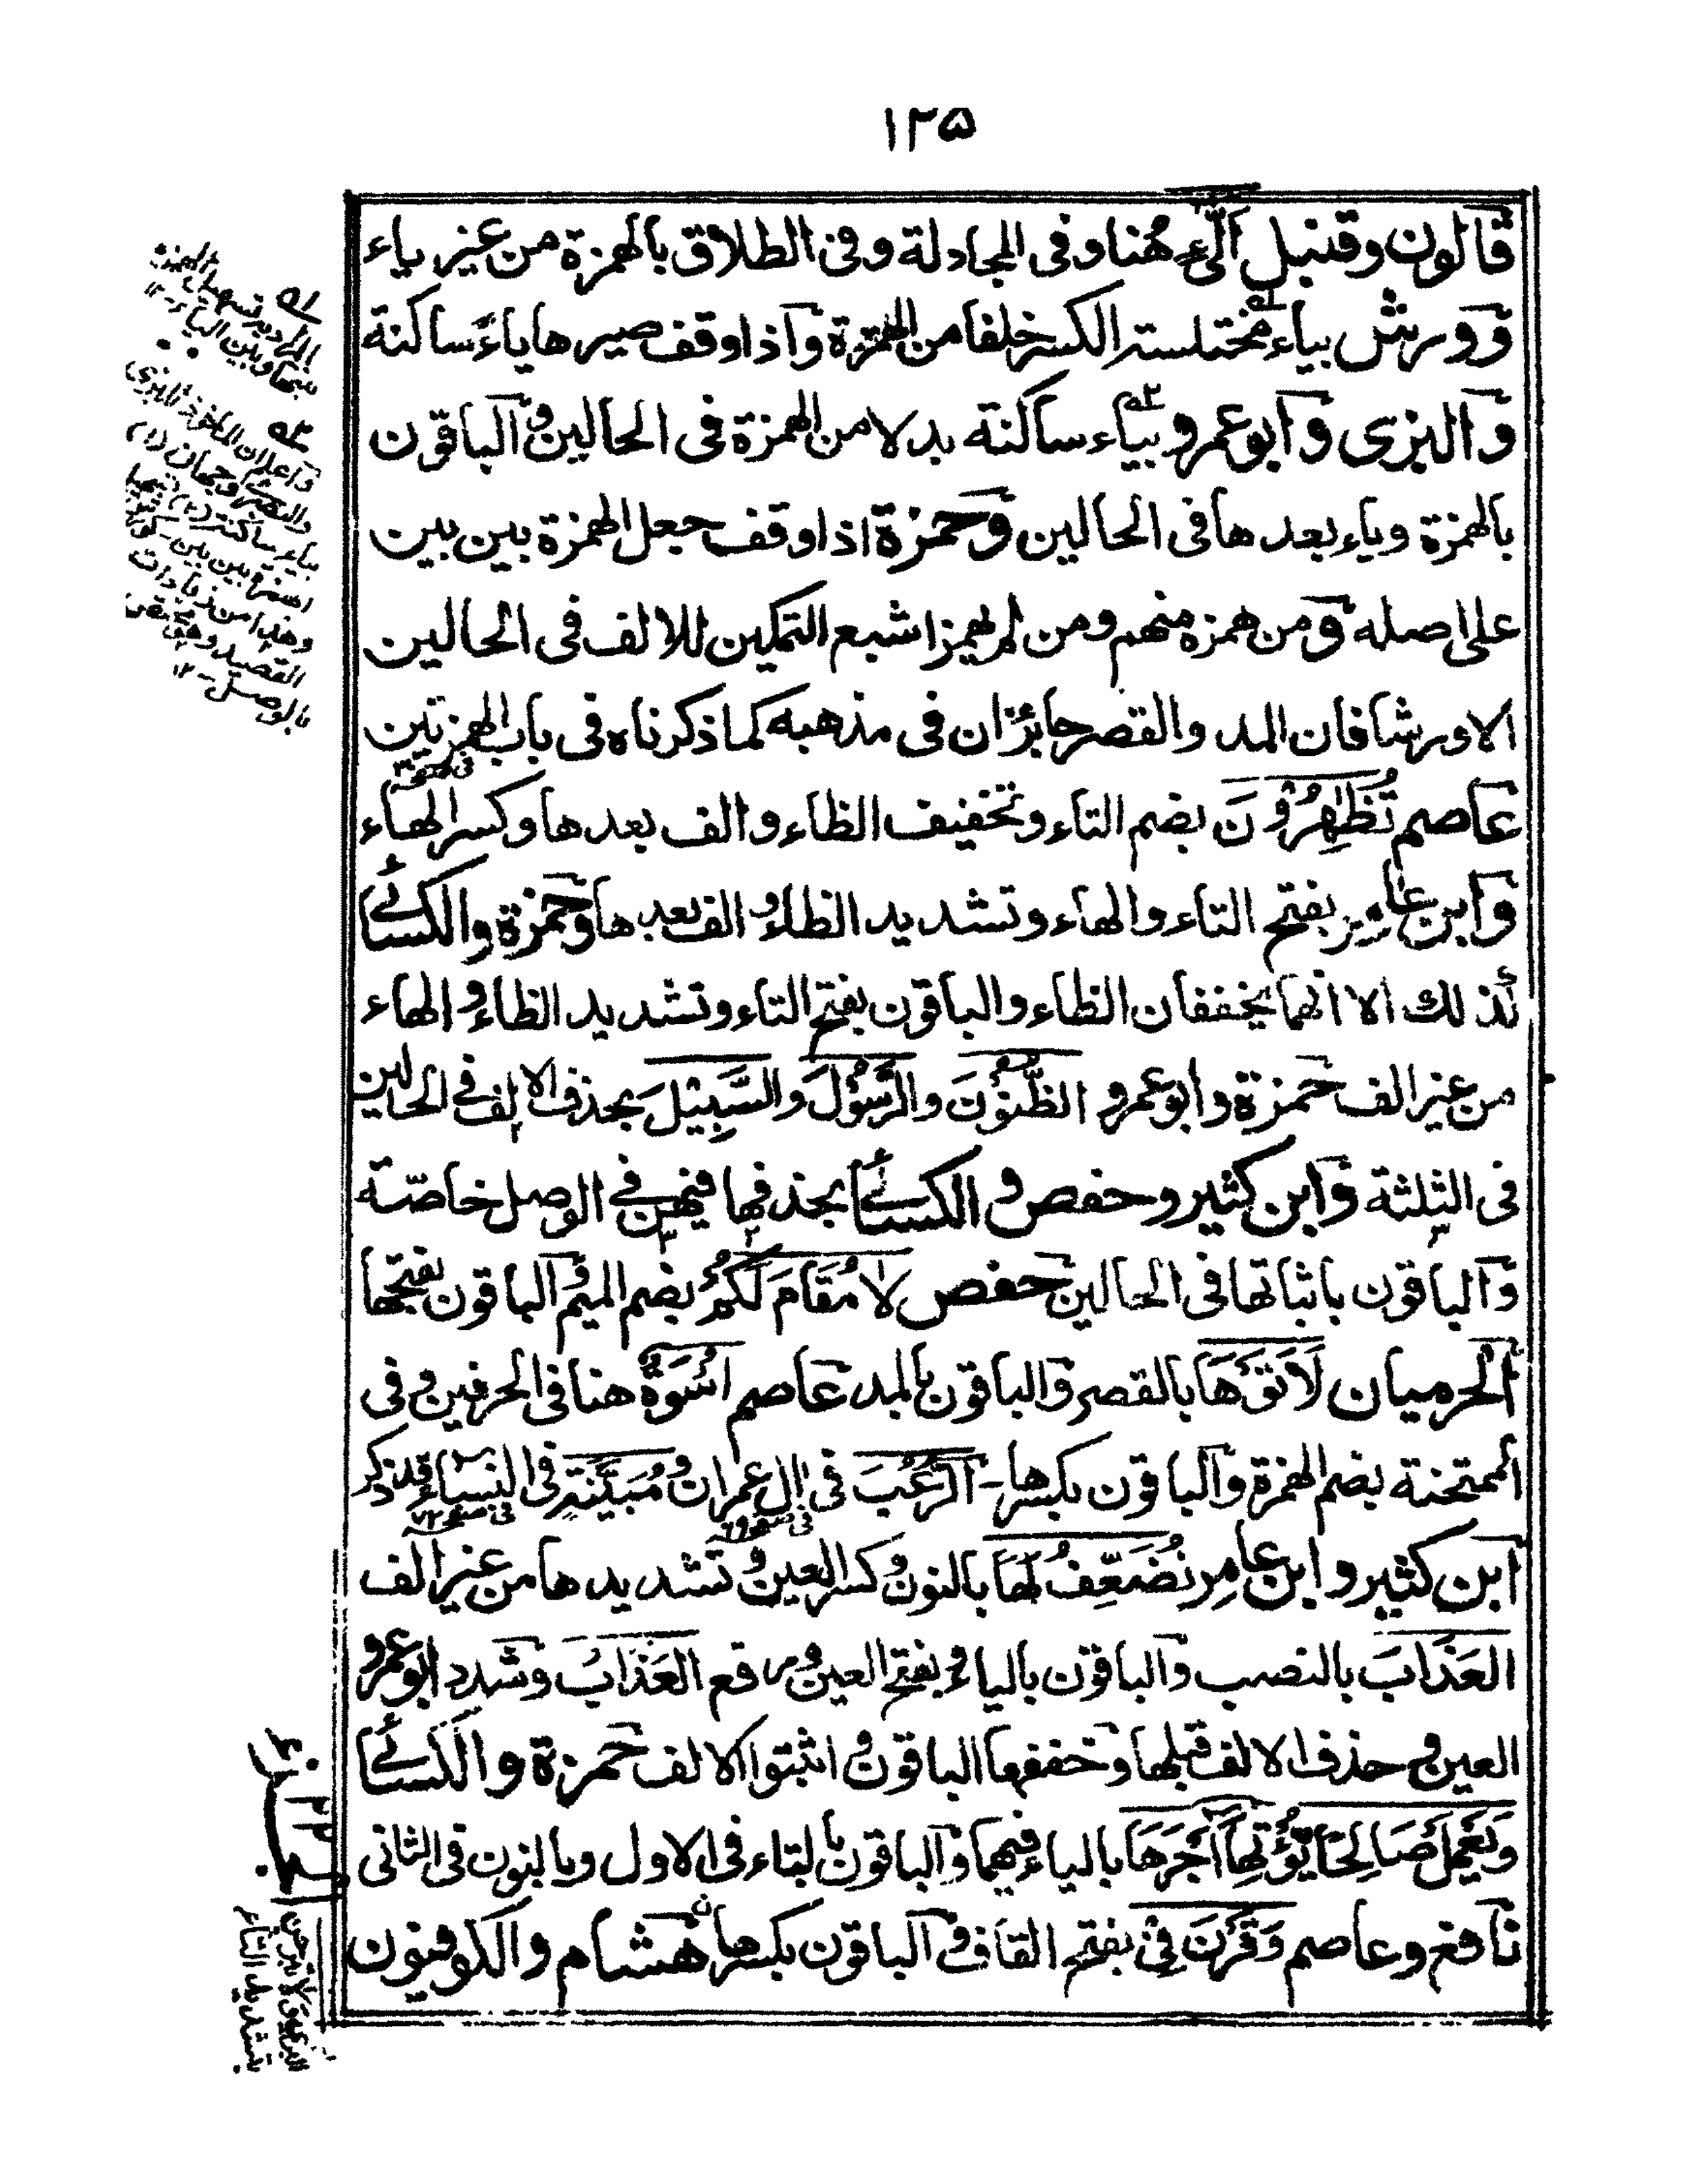 ١٢٥
قالون وقنبل الّٰئِ هُنا وفى المجادلة وفى الطلاق بالهمزة من غير ياء
وورش بياء مختلسة الكسر خلفا من الهمزة واذا وقف صيرها ياءً ساكنة
والبزى وابو عمرو بياء ساكنة بدلا من الهمزة فى الحالين والباقون
بالهمزة وياء بعدها فى الحالين وحمزة اذا وقف جعل الهمزة بين بين
على اصله ومن همزه منهم ومن لم يهمز اشبع التمكين للالف فى الحالين
الا ورشا فان المد والقصر جائزان فى مذهبه كما ذكرناه فى باب الهمزتين
عاصم تُظٰهِرُوْنَ بضم التاء وتخفيف الظاء والف بعدها وكسر الهاء
وابن عامر بفتح التاء والهاء وتشديد الظاء والف بعدها وحمزة والكسائى
كذلك الا انهما يخففان الظاء والباقون بفتح التاء وتشديد الظاء والهاء
من غير الف حمزة وابو عمرو الظُّنُوْنَ والرَّسُوْلَ والسَّبِيْلَ بحذف الالف فى الحالين
فى الثلثة وابن كثير وحفص والكسائى بحذفها فيهن فى الوصل خاصّة
والباقون باثباتها فى الحالين حفص لَا مُقَامَ لَكُمْ بضم الميم الباقون بفتحها
الحرميان لَاَتَوْهَا بالقصر والباقون بالمد عاصم اُسْوَةٌ هنا فى الحرفين وفى
الممتحنة بضم الهمزة والباقون بكسرها - الرُّعُبَ فى اٰل عمران ومُبَيَّنَةٍ فى النساء قد ذكر
ابن كثير وابن عامِر نُضَعِّفُ لَهَا بالنون وكسر العين وتشديدها من غير الف
العَذَابَ بالنصب والباقون بالياء وبفتح العين ورفع العَذَابُ وشدد ابو عمرو
العين وحذف الالف قبلها وخففها الباقون واثبتوا الالف حمزة والكسائى
وَيَعْمَلْ صَالِحًا يُّؤْتِهَا اَجْرَهَا بالياء فيهما والباقون بالتاء فى الاول وبالنون فى الثانى
نافع وعاصم وَقَرْنَ فِىْ بفتح القاف والباقون بكسرها هشام والكوفيون